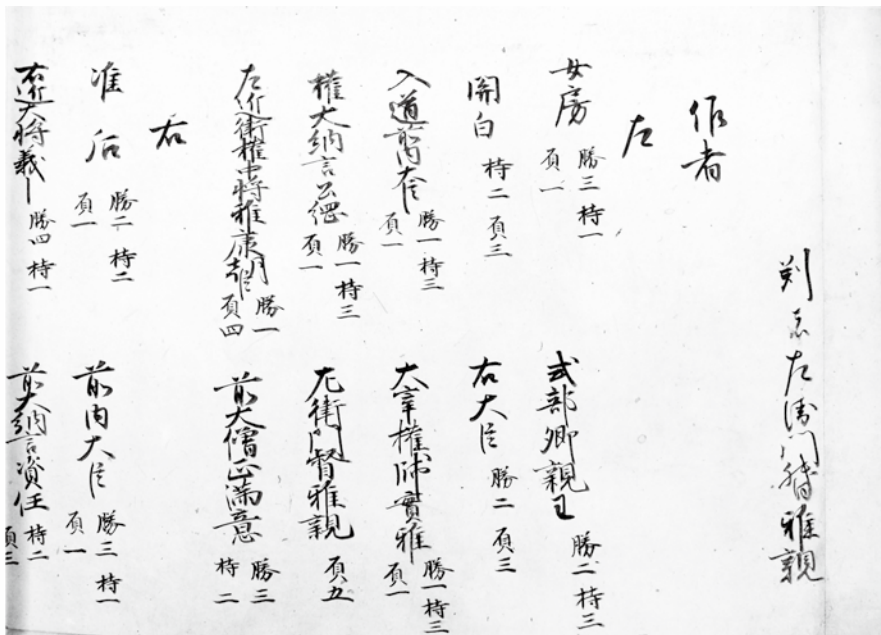 判者左衛門督雅親
作者
左
女房 勝三 持一 負一
式部卿親王 勝二 持三
関白 持二 負三
右大臣 勝二 負三
入道前内大臣 勝一 持三 負一
大宰権帥實雅 勝一 持三 負一
權大納言公綱 勝一 持三 負一
左衛門督雅親 負五
左近衛權中将雅康朝臣 勝一 負四
前大僧正満意 勝三 持二
右
准后 勝二 持二 負一
前内大臣 勝三 持一 負一
右近大将義 勝四 持一
前大納言資任 持二 負三